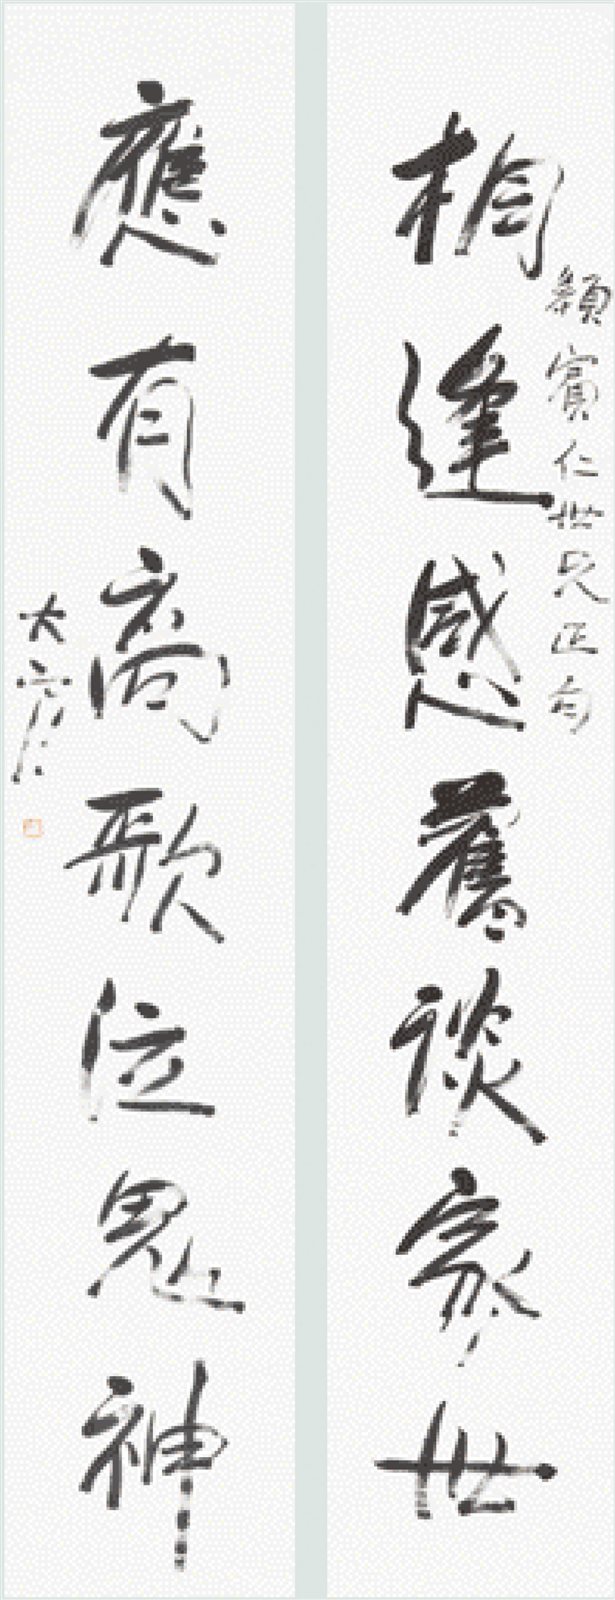 穎賓仁世兄正句
相逢感舊談家世
應有高歌泣鬼神